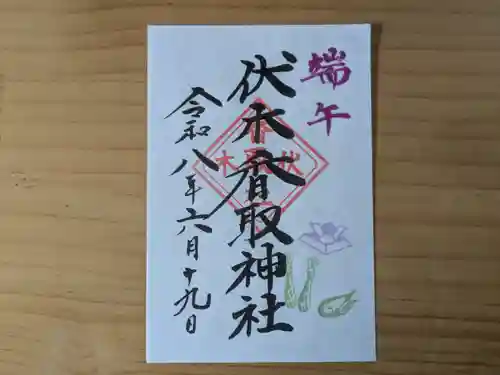 端午
伏木香取神社
令和八年六月十九日